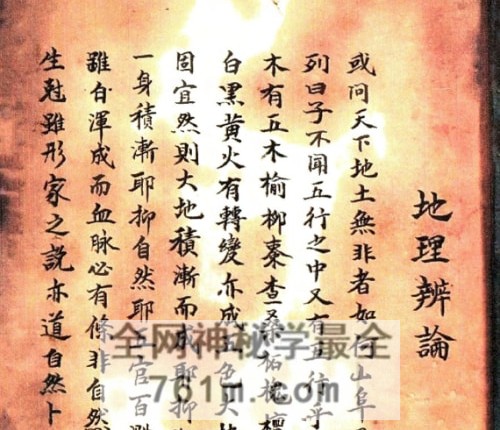 地理辨論
或問天下地土無非者如何山阜
列曰子不聞五行之中又有五行乎
木有五木榆柳棗查桑柘槐檀
白黑黃火有轉變亦成五色大
固宜然則大地積漸而成耶抑
一身積漸耶抑自然耶五官百骸
雖自渾成而血脉必有條非自然
生尅雖形家之説亦道自然卜
全网神秘学最全
761m.com